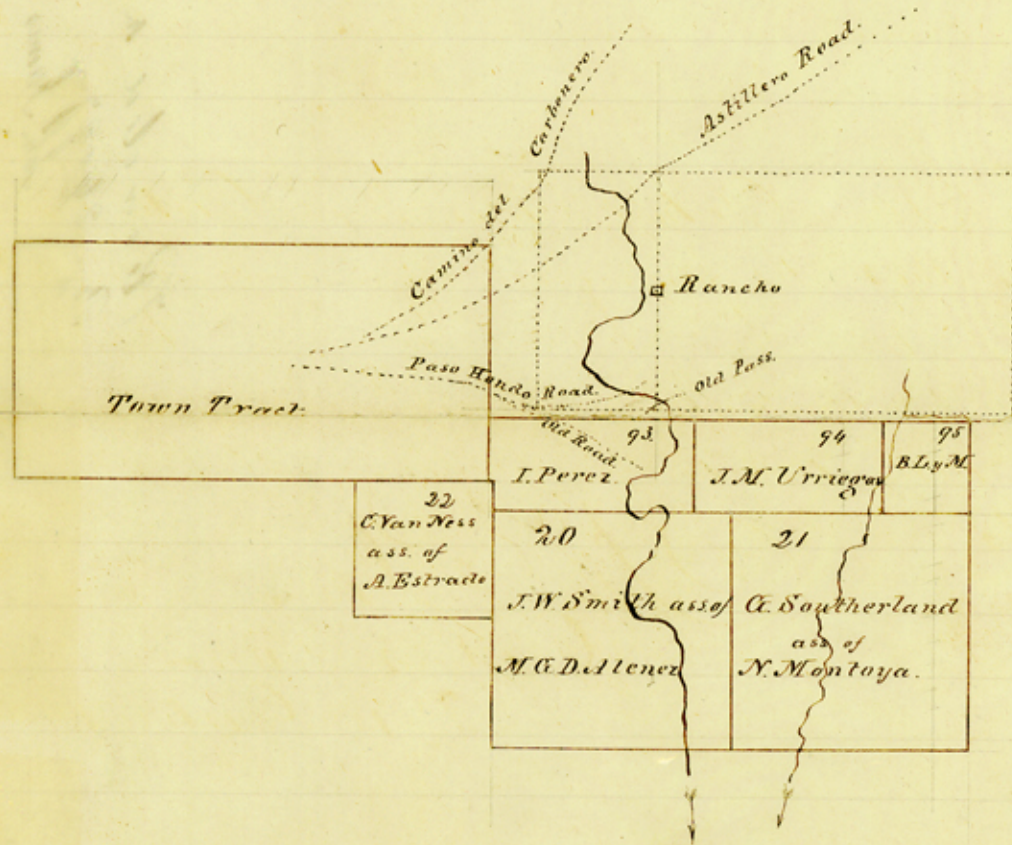 Camino del Carbonero.
Astillero Road.
Rancho
Paso Hondo Road.
Old Pass.
Town Tract
Old Road.
93.
I. Perez.
94
J.M. Urriegas
95
B.L.y M.
22
C. Van Ness
ass. of
A. Estrado
20
J.W. Smith ass. of
M.G.D. Alener
21
G. Southerland
ass of
N. Montoya.